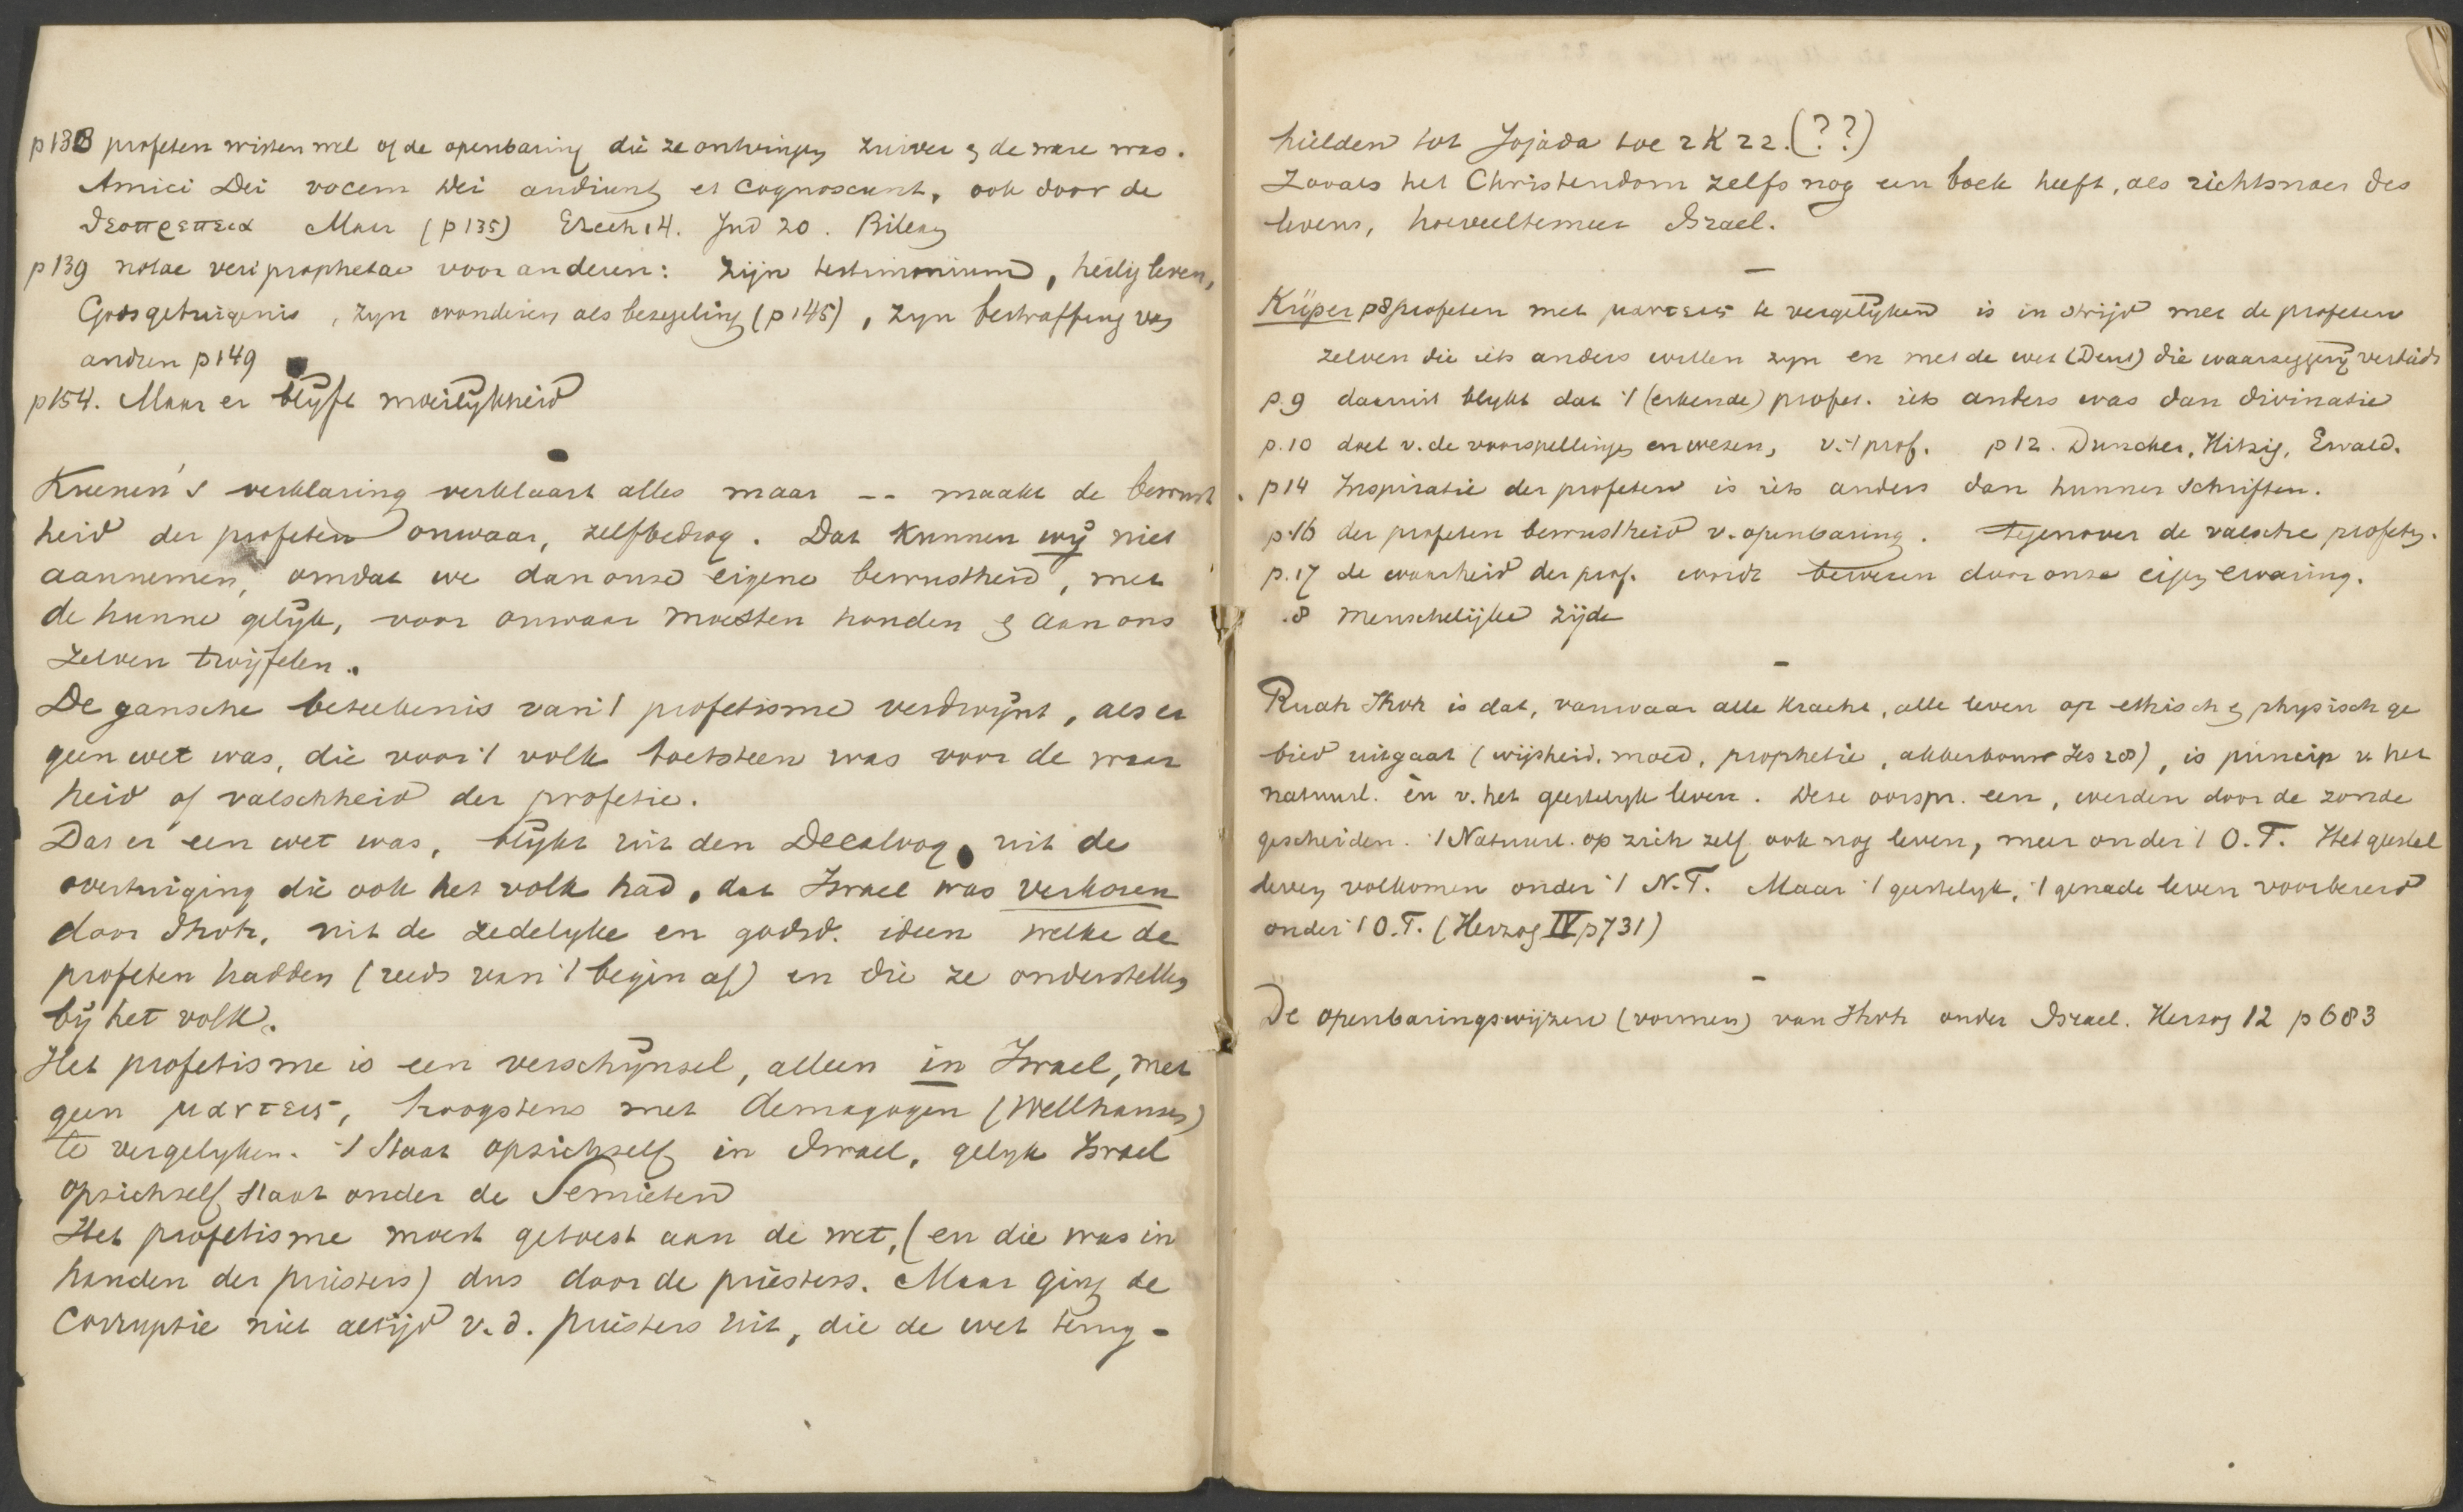 p 138 profeten wisten wel of de openbaring die ze ontvingen zuiver & de ware was.
Amici Dei vocem Dei audiunt et cognoscunt, ook door de
θεοπρεπεια Maar (p 135) Ezech 14. Jud 20. Bileam
p 139 notae veri prophetae voor anderen: zijn testimonium, heilig leven,
Godsgetuigenis, zyn wonderen als bezegeling (p 145), zyn bestraffing van
andren p 149
p 154. Maar er blijft moeilijkheid
Kuenen's verklaring verklaart alles maar -- maakt de bewust
heid der profeten onwaar, zelfbedrog. Dat kunnen wij niet
aannemen, omdat we dan onze eigene bewustheid, met
de hunne gelijk, voor onwaar moesten houden & aan ons
zelven twijfelen.
De gansche beteekenis van 't profetisme verdwijnt, als er
geen wet was, die voor 't volk toetsteen was voor de waar
heid of valschheid der profetie.
Dat er een wet was, blijkt uit den Decaloog, uit de
overtuiging die ook het volk had, dat Israel was verkoren
door Jhvh, uit de zedelyke en godsd. ideen welke de
profeten hadden (reeds van 't begin af) en die ze onderstellen
bij het volk.
Het profetisme is een verschijnsel, alleen in Israel, met
geen μαντεις, hoogstens met demagogen (Wellhausen)
te vergelyken. 't Staat opzichzelf in Israel, gelyk Israel
opzichzelf staat onder de Semieten
Het profetisme moest getoest aan de wet, (en die was in
handen der priesters) dus door de priesters. Maar ging de
corruptie niet altijd v.d. priesters uit, die de wet terug-
hielden tot Jojada toe 2 K 22. (??)
Zooals het Christendom zelfs nog een boek heeft, als richtsnoer des
levens, hoeveeltemeer Israel.
Küper p 8 profeten met μαντεις te vergelijken is in strijd met de profeten
zelven die iets anders willen zyn en met de wet (Deut) die waarzeggerij verbiedt
p. 9 daaruit blykt dat 't (erkende) profet. iets anders was dan divinatie
p. 10 doel v. de voorspellingen en wezen, v. 't prof. p 12. Duncker, Hitzig, Ewald.
p 14 Inspiratie der profeten is iets anders dan hunner schriften.
p. 16 der profeten bewustheid v. openbaring. tegenover de valsche profeten.
p. 17 de waarheid der prof. wordt bewezen door onze eigen ervaring.
.8 menschelijke zijde
Ruah Jhvh is dat, vanwaar alle kracht, alle leven op ethisch & physisch ge
bied uitgaat (wijsheid, moed, prophetie, akkerbouw Jes 28), is princip v. het
natuurl. èn v. het geestelyk leven. Deze oorspr. een, werden door de zonde
gescheiden. 't Natuurl. op zich zelf ook nog leven, meer onder 't O.T. Het geestel
leven volkomen onder 't N.T. Maar 't geestelyk, 't genade leven voorbereid
onder 't O.T. (Herzog IV p 731)
De openbaringswijzen (vormen) van Jhvh onder Israel. Herzog 12 p 683